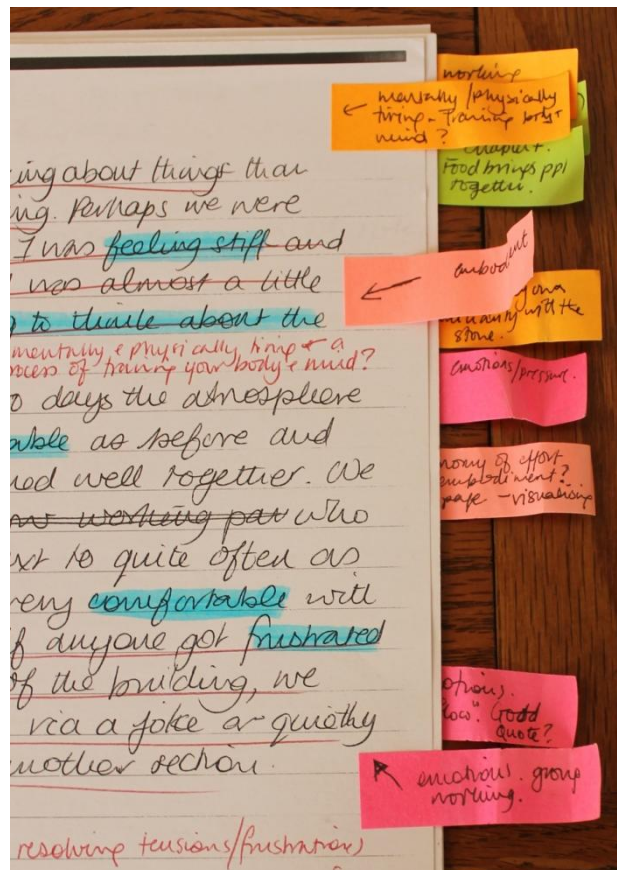 ing about things than
ing. Perhaps we were
I was feeling stiff and
I was almost a little
to think about the
mentally & physically tiring & a
process of training your body & mind?
days the atmosphere
able as before and
well together. We
working par who
to quite often as
very comfortable with
if anyone got frustrated
of the building, we
via a joke or quietly
another section.
resolving tensions/frustrations
working
← mentally/physically
tiring - Training body +
mind?
chapter.
Food brings ppl
together.
← embodiment
with the
stone.
emotions/pressure.
nomy of effort
embodiment?
page - visualising
otions.
"loco". Good
Quote?
emotions. group
working.